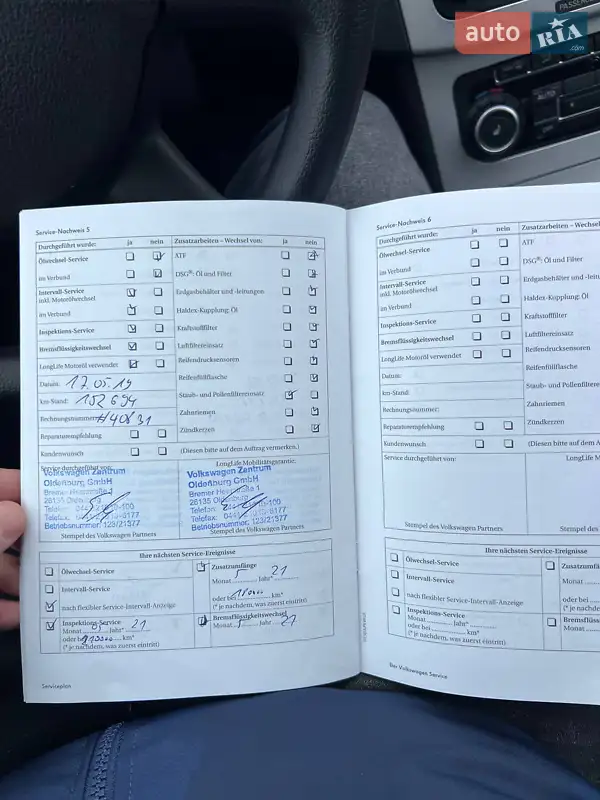 auto RIA .com
PASSENGER
Service-Nachweis 5
Durchgeführt wurde: ja nein
Ölwechsel-Service
im Verbund
Intervall-Service
inkl. Motorölwechsel
im Verbund
Inspektions-Service
Bremsflüssigkeitswechsel
LongLife Motoröl verwendet
Datum: 17.05.19
km-Stand: 152 694
Rechnungsnummer:
Reparaturempfehlung
Kundenwunsch
Zusatzarbeiten – Wechsel von: ja nein
ATF
DSG®: Öl und Filter
Erdgasbehälter und -leitungen
Haldex-Kupplung: Öl
Kraftstofffilter
Luftfiltereinsatz
Reifendrucksensoren
Reifenfüllflasche
Staub- und Pollenfiltereinsatz
Zahnriemen
Zündkerzen
(Diesen bitte auf dem Auftrag vermerken.)
Service durchgeführt von:
Volkswagen Zentrum
Oldenburg GmbH
Bremer Heerstraße 1
26135 Oldenburg
Telefon:
Telefax:
Betriebsnummer: 123/21377
Stempel des Volkswagen Partners
LongLife Mobilitätsgarantie
Volkswagen Zentrum
Oldenburg GmbH
Bremer Heerstraße 1
26135 Oldenburg
Telefon:
Telefax:
Betriebsnummer: 123/21377
Stempel des Volkswagen Partners
Ihre nächsten Service-Ereignisse
Ölwechsel-Service
Intervall-Service
nach flexibler Service-Intervall-Anzeige
Inspektions-Service
Monat 5 Jahr* 21
oder bei km*
(* je nachdem, was zuerst eintritt)
Zusatzumfänge
Monat 5 Jahr* 21
oder bei km*
(* je nachdem, was zuerst eintritt)
Bremsflüssigkeitswechsel
Monat 5 Jahr 21
Serviceplan
Service-Nachweis 6
Durchgeführt wurde: ja nein
Ölwechsel-Service
im Verbund
Intervall-Service
inkl. Motorölwechsel
im Verbund
Inspektions-Service
Bremsflüssigkeitswechsel
LongLife Motoröl verwendet
Datum:
km-Stand:
Rechnungsnummer:
Reparaturempfehlung
Kundenwunsch
Zusatzarbeiten – Wechsel
ATF
DSG®: Öl und Filter
Erdgasbehälter und
Haldex-Kupplung: Öl
Kraftstofffilter
Luftfiltereinsatz
Reifendrucksensoren
Reifenfüllflasche
Staub- und Pollenfilter
Zahnriemen
Zündkerzen
(Diesen bitte auf dem A
Service durchgeführt von:
LongLife M
Stempel des Volkswagen Partners
Stempel
Ihre nächsten Service-E
Ölwechsel-Service
Intervall-Service
nach flexibler Service-Intervall-Anzeige
Inspektions-Service
Monat Jahr*
oder bei km*
(* je nachdem, was zuerst eintritt)
Zusatzumfän
Monat
oder bei
(* je nachdem
Bremsflüss
Monat
Der Volkswagen Service